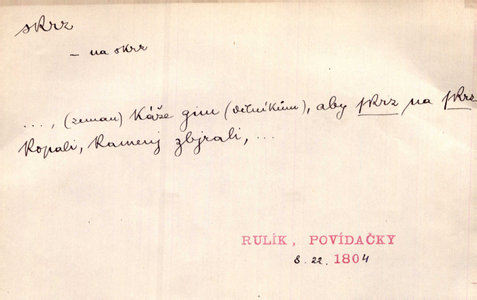 skrz
– na skrz
..., (zeman) Káže gim (dělníkům), aby skrz na skrz
kopali, kamenj zbjrali, ...
RULÍK, POVÍDAČKY
s. 22. 1804